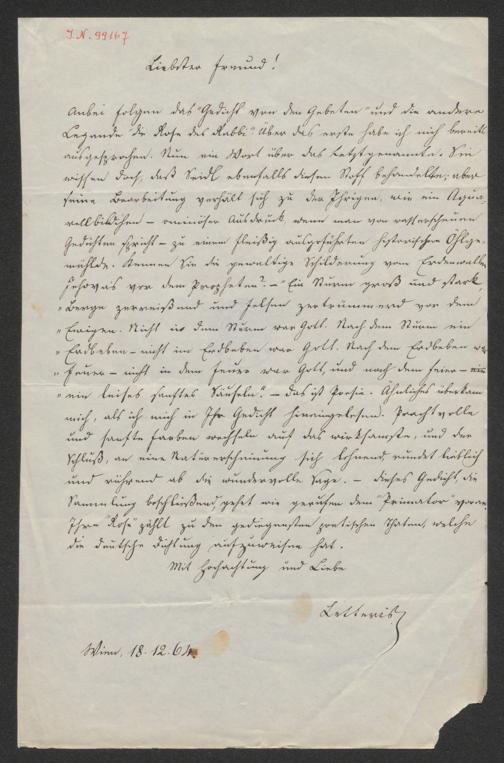 J.N. 99167
Liebster Freund!
Anbei folgen das "Gedicht von den Gebeten" und die andere
Legende "die Rose des Rabbi". Über das erste habe ich mich bereits
ausgesprochen. Nun ein Wort über das Letztgenannte. Sie
wissen doch, daß Seidl ebenfalls diesen Stoff behandelte; aber
seine Bearbeitung verhält sich zu der Ihrigen, wie ein Aqua-
rellbildchen – ominöser Ausdruck, wenn man von wasserscheuen
Gedichten spricht – zu einem fleißig ausgeführten historischen Öhlge-
mählde. Kennen Sie die gewaltige Schilderung vom Erdenwallen
Jehovas vor dem Propheten? – "Ein Sturm groß und stark,
"Berge zerreißend und Felsen zertrümmernd vor dem
"Ewigen. Nicht in dem Sturm war Gott. Nach dem Sturm ein
"Erdbeben – nicht im Erdbeben war Gott. Nach dem Erdbeben war
"Feuer – nicht in dem Feuer war Gott, und nach dem Feuer –
"ein leises sanftes Säuseln." – Das ist Poesie. Ähnliches überkam
mich, als ich mich in Ihr Gedicht hineingelesen. Prachtvolle
und sanfte Farben wechseln auf das wirksamste, und der
Schluß, an eine Naturerscheinung sich lehnend, rundet lieblich
und rührend ab die wundervolle Sage. – Dieses Gedicht, die
Sammlung beschließend, geht wie gerufen dem "Primator" voran.
Ihre "Rose" zählt zu den gediegensten poetischen Thaten, welche
die deutsche Dichtung aufzuweisen hat.
Mit Hochachtung und Liebe
Letteris
Wien, 18.12.64.